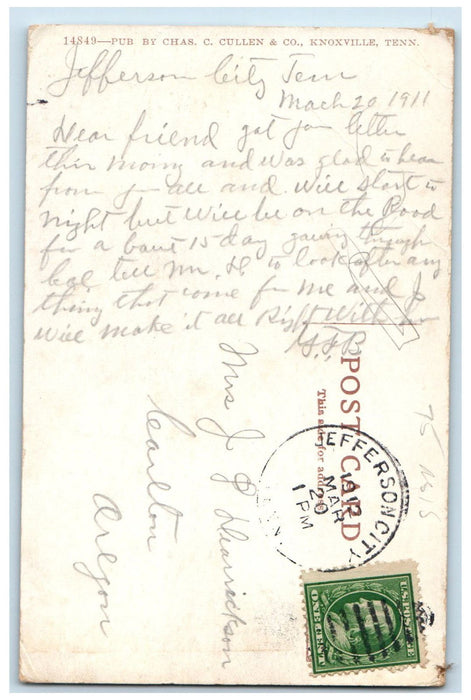 14849—PUB BY CHAS. C. CULLEN & CO., KNOXVILLE, TENN.
Jefferson City Tenn
Mach 20, 1911
Dear friend got your letter
this moring and was glad to hear
from you all and Will start to
night but will be on the Rood
for a bout 15 day going through
Cal tell Mr. H. to look after any
thing that come for me and I
will make it all Right With him
G.F.B
POST CARD
This side for address
JEFFERSON CITY
MAR
20
1 PM
Mrs J P Hearickson
Carlton
Oregon
U.S. POSTAGE
ONE CENT